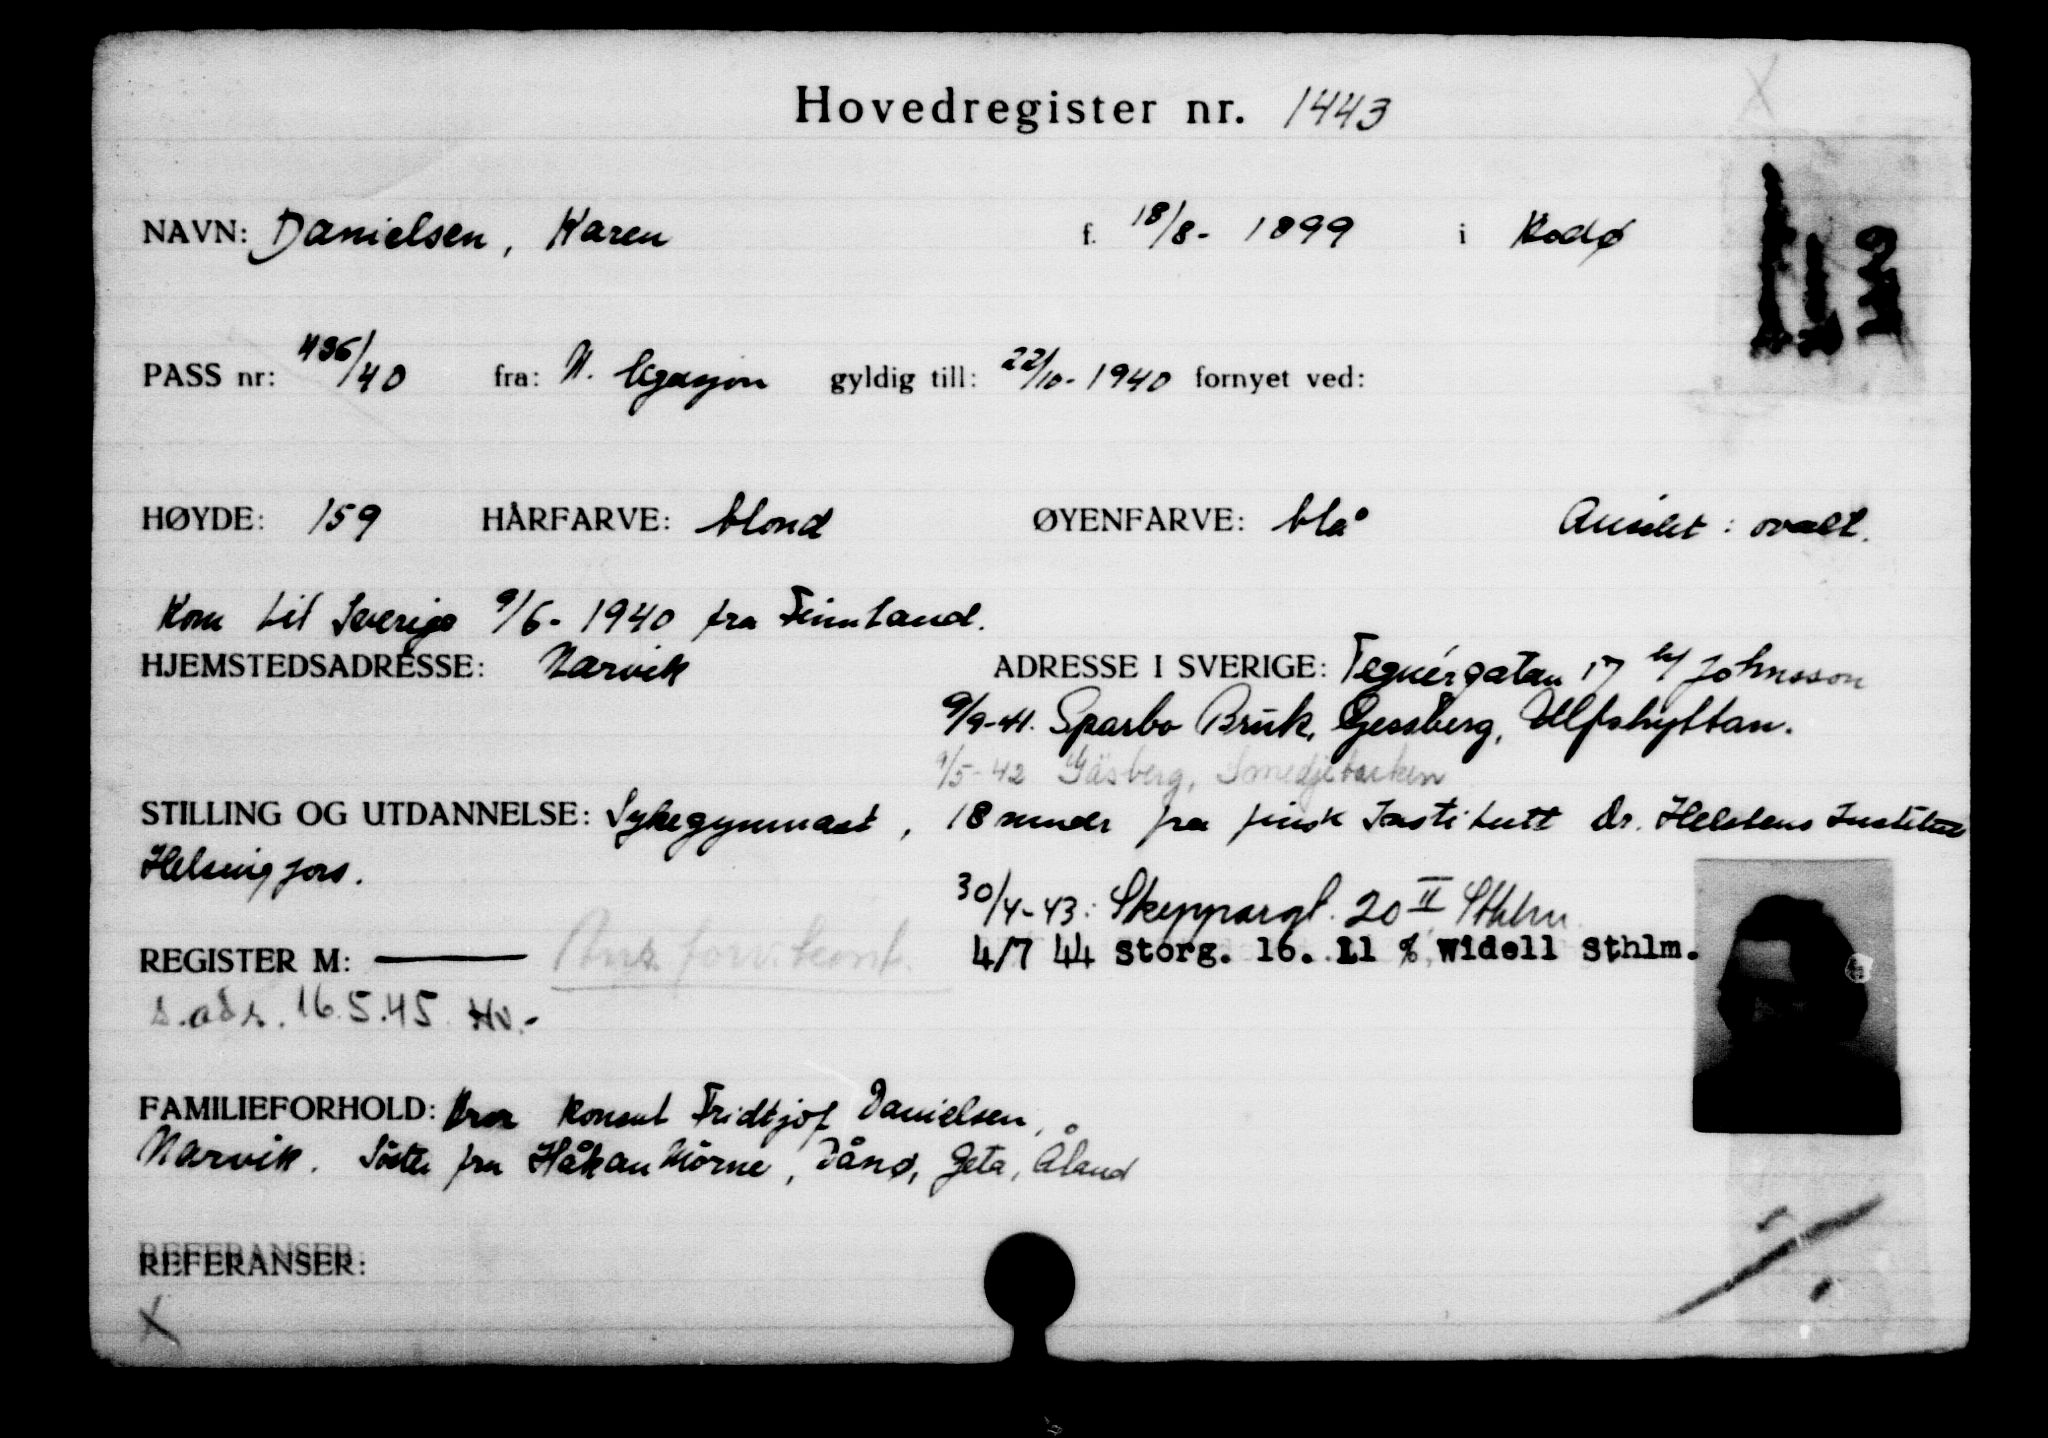 Hovedregister nr. 1443
NAVN: Danielsen, Karen f. 18/8- 1899 i Rodø
PASS nr: 436/40 fra: N. legasjon gyldig till: 22/10- 1940 fornyet ved:
HØYDE: 159 HÅRFARVE: blond ØYENFARVE: blå Ansikt: ovalt.
Kom til Sverige 9/6- 1940 fra Finnland.
HJEMSTEDSADRESSE: Narvik ADRESSE I SVERIGE: Tegnérgatan 17 b/ Johnsson
9/9-41. Sparbo Bruk, Gessberg, Ulfshyttan.
1/5-42 Gäsberg, Smedjebacken
STILLING OG UTDANNELSE: Sykegymnast, 18 mndr fra finsk Institutt Dr. Helstens Institut
Helsingfors.
30/4-43: Skeppargt. 20 II Sthlm.
REGISTER M: — 4/7 44 Storg. 16. 11 %, Widell Sthlm.
s.adr. 16.5.45 Hv.-
FAMILIEFORHOLD: Bror Konsul Fridtjof Danielsen,
Narvik. Söster fru Håkan Mörne, Dånø, Geta, Åland
REFERANSER:
X